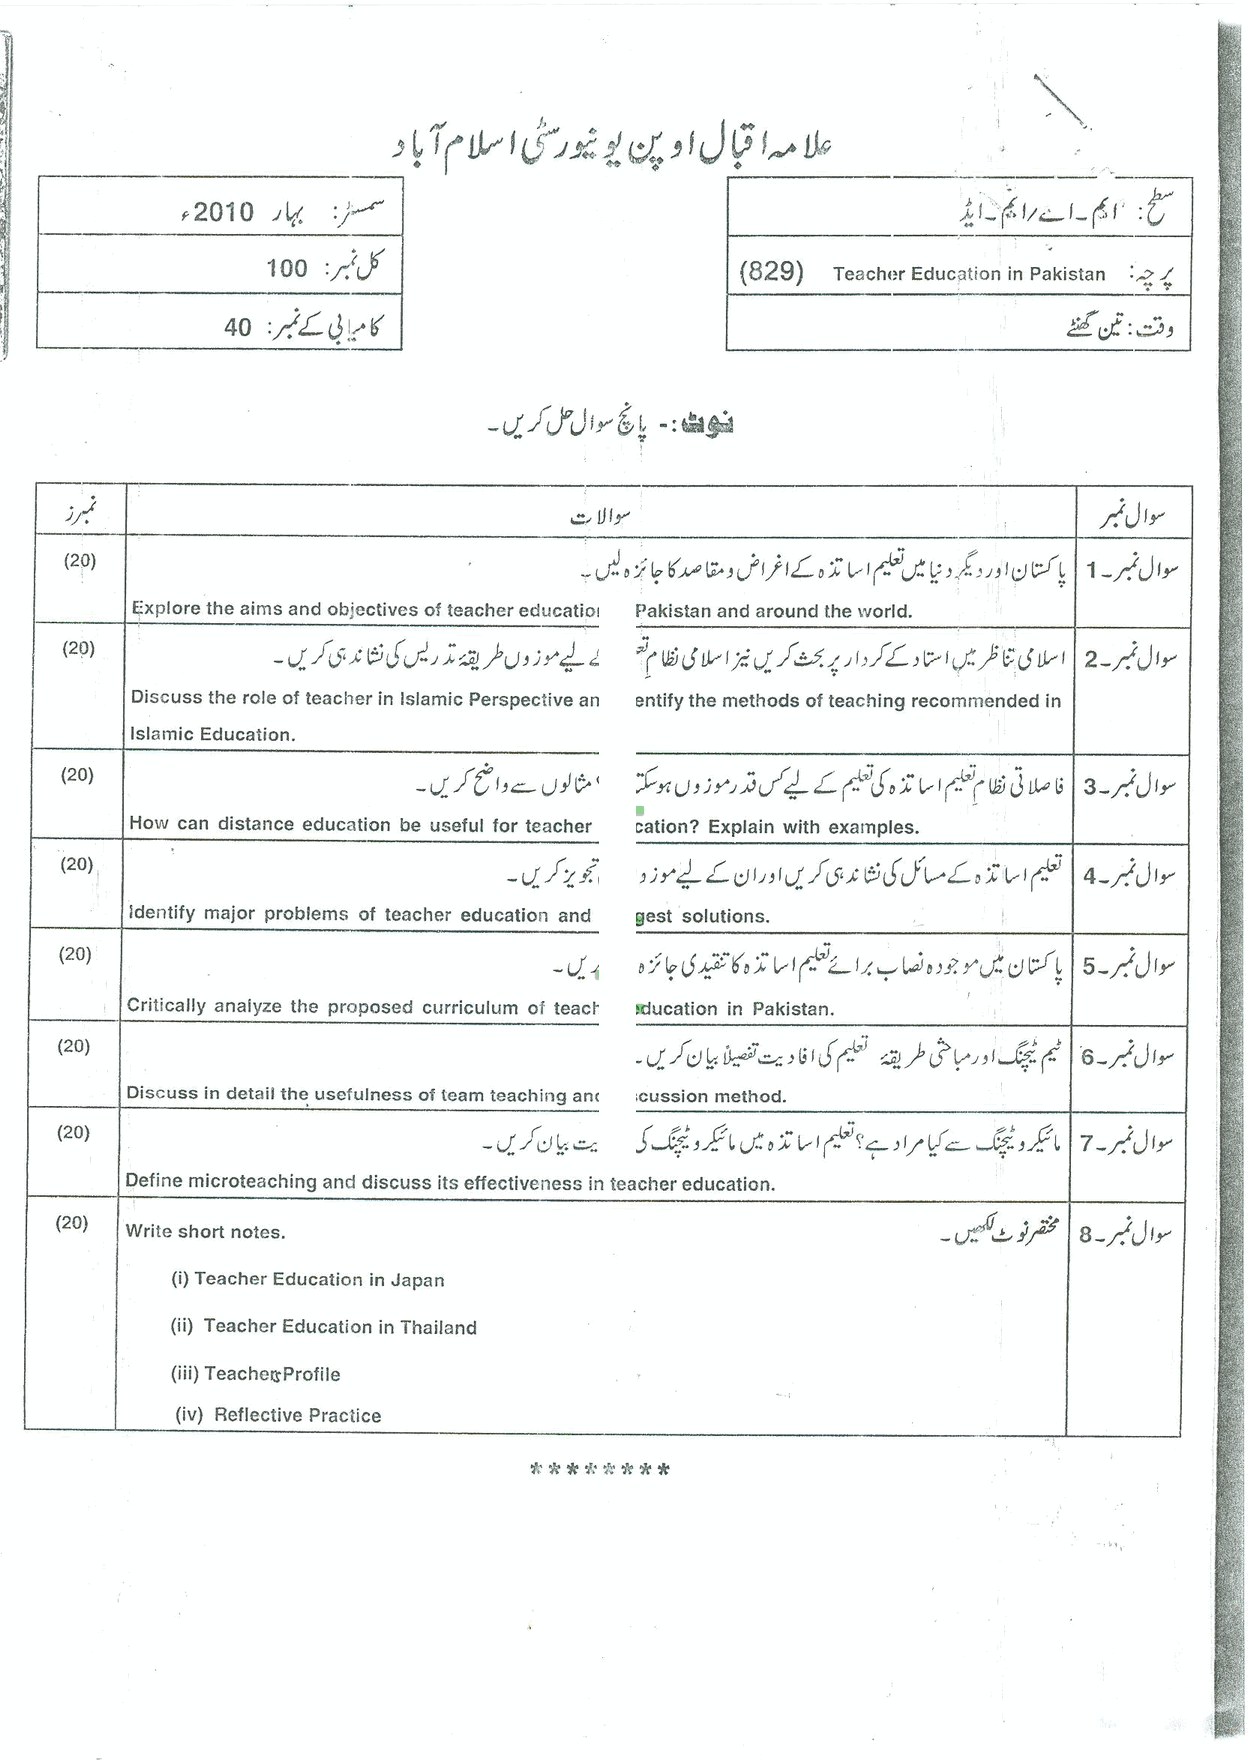 علامہ اقبال اوپن یونیورسٹی اسلام آباد
سطح: ایم۔اے/ایم۔ایڈ
سمسٹر: بہار 2010ء
پرچہ: Teacher Education in Pakistan (829)
کل نمبر: 100
وقت: تین گھنٹے
کامیابی کے نمبر: 40
نوٹ:- پانچ سوال حل کریں۔
سوال نمبر سوالات نمبرز
سوال نمبر۔1 پاکستان اور دیگر دنیا میں تعلیم اساتذہ کے اغراض و مقاصد کا جائزہ لیں۔ (20)
Explore the aims and objectives of teacher Pakistan and around the world.
سوال نمبر۔2 اسلامی تناظر میں استاد کے کردار پر بحث کریں نیز اسلامی نظامِ لیے موزوں طریقۂ تدریس کی نشاندہی کریں۔ (20)
Discuss the role of teacher in Islamic Perspective the methods of teaching recommended in
Islamic Education.
سوال نمبر۔3 فاصلاتی نظامِ تعلیم اساتذہ کی تعلیم کے لیے کس قدر موزوں مثالوں سے واضح کریں۔ (20)
How can distance education be useful for teacher Explain with examples.
سوال نمبر۔4 تعلیم اساتذہ کے مسائل کی نشاندہی کریں اور ان کے لیے تجویز کریں۔ (20)
Identify major problems of teacher education and solutions.
سوال نمبر۔5 پاکستان میں موجودہ نصاب برائے تعلیم اساتذہ کا تنقیدی جائزہ (20)
Critically analyze the proposed curriculum of in Pakistan.
سوال نمبر۔6 ٹیم ٹیچنگ اور مباحثی طریقۂ تعلیم کی افادیت تفصیلاً بیان کریں۔ (20)
Discuss in detail the usefulness of team teaching method.
سوال نمبر۔7 مائیکرو ٹیچنگ سے کیا مراد ہے؟ تعلیم اساتذہ میں مائیکرو ٹیچنگ کی بیان کریں۔ (20)
Define microteaching and discuss its effectiveness in teacher education.
سوال نمبر۔8 مختصر نوٹ لکھیں۔ Write short notes. (20)
(i) Teacher Education in Japan
(ii) Teacher Education in Thailand
(iii) Teachers Profile
(iv) Reflective Practice
********